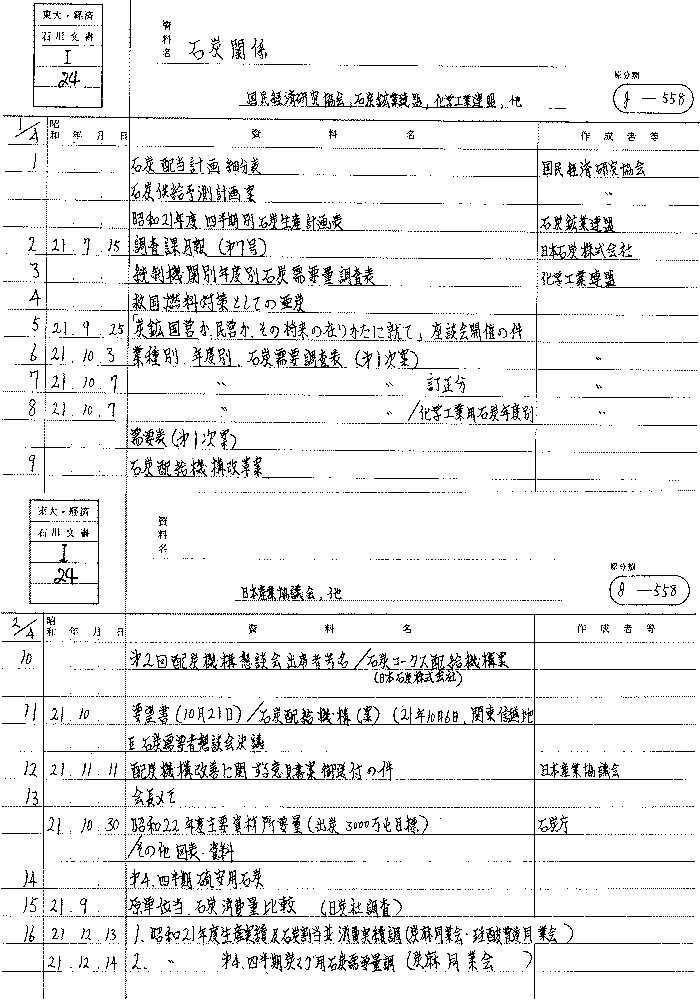 東大・経済
石川文書
I
24
資料名 石炭関係
国民経済研究協会, 石炭鉱業連盟, 化学工業連盟, 他
原分類
8 — 558
1/4 昭和 年 月 日 資料名 作成者等
1 石炭配当計画細分表 国民経済研究協会
石炭供給予測計画案 〃
昭和21年度 四半期別石炭生産計画表 石炭鉱業連盟
2 21. 7. 15 調査課月報 (第7号) 日本石炭株式会社
3 統制機関別年度別石炭需要量調査表 化学工業連盟
4 救国燃料対策としての亜炭
5 21. 9. 25 「炭鉱国営か民営か, その将来の在りかたに就て」座談会開催の件
6 21. 10. 3 業種別 年度別, 石炭需要調査表 (第1次案) 〃
7 21. 10. 7 〃 〃 訂正分 〃
8 21. 10. 7 〃 〃 /化学工業用石炭年度別 〃
需要表 (第1次案)
9 石炭配給機構改革案
東大・経済
石川文書
I
24
資料名
日本産業協議会, 他
原分類
8 — 558
2/4 昭和 年 月 日 資料名 作成者等
10 第2回配炭機構懇談会出席者芳名/石炭コークス配給機構案
(日本石炭株式会社)
11 21. 10 要望書 (10月21日) /石炭配給機構 (案) (21年10月6日, 関東信越地
区石炭需要者懇談会決議
12 21. 11. 11 配炭機構改善に関する意見書案御送付の件 日本産業協議会
13 会長メモ
21. 10. 30 昭和22年度主要資材所要量 (出炭 3000万屯目標) 石炭庁
/その他図表・資料
14 第4. 四半期 確安用石炭
15 21. 9. 原単位当, 石炭消費量比較 (日炭社調査)
16 21 12. 13 1. 昭和21年度生産実績及石炭割当並消費実績調 (炭麻同業会・珪酸曹達同業会)
21. 12. 14 2. 〃 第4. 四半期炭マグ用石炭需要量調 (炭麻同業会)